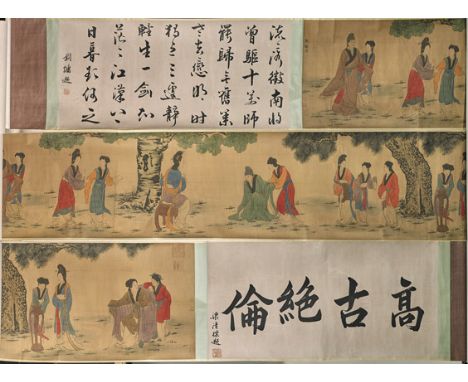 流落徵南將
曾驅十萬師
罷歸無舊業
老去戀明時
獨立三邊靜
輕生一劍知
茫〻江漢上
日暮欲何之
劉墉題
高古絕倫
梁清標題